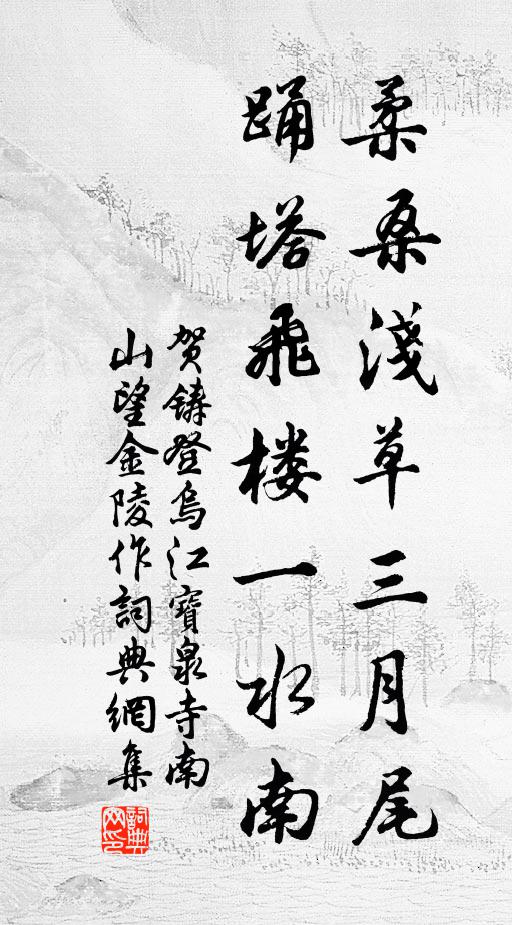 柔桑淺草三月尾
踊塔飛楼一水南
贺鑄登烏江寶泉寺南
山望金陵作詞典網集
詞典网印